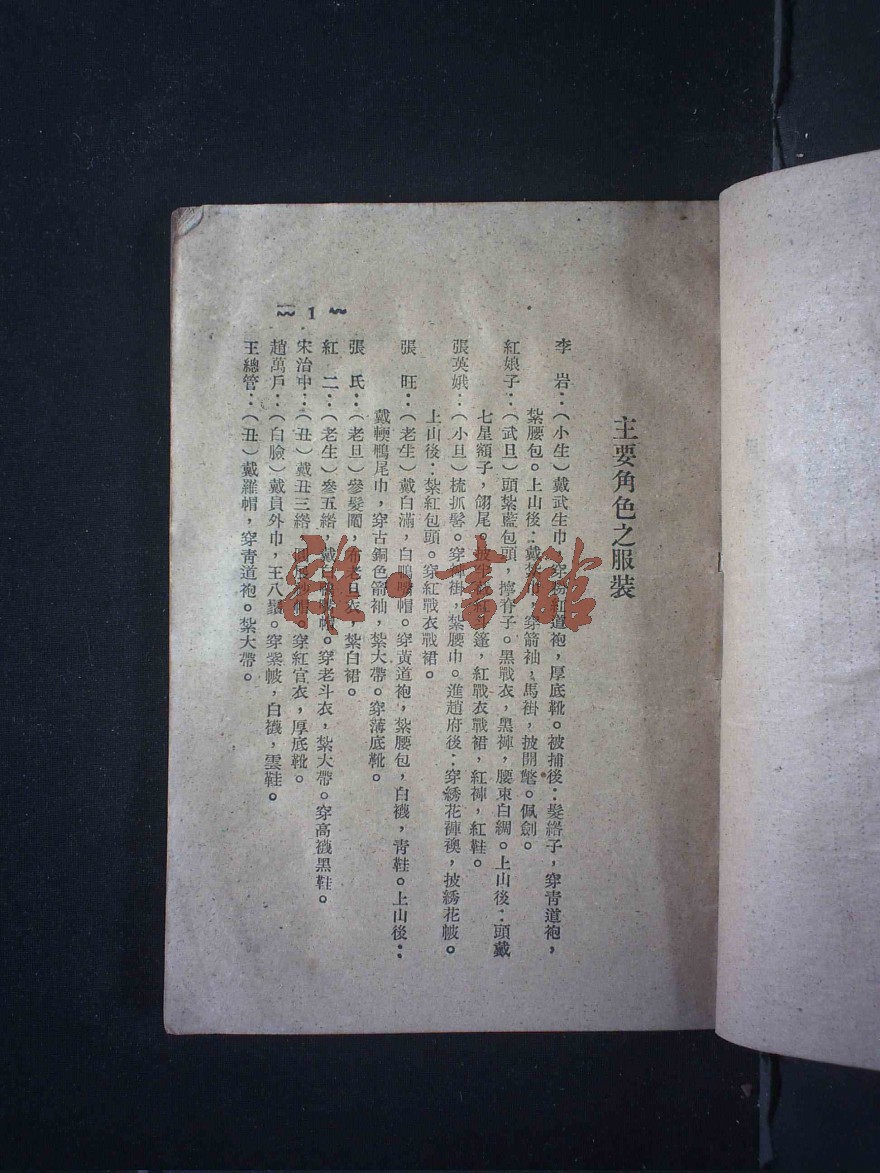 主要角色之服裝
李　岩：（小生）戴武生巾，穿粉紅道袍，厚底靴。被捕後：髮綹子，穿青道袍，
紮腰包。上山後：戴 穿箭袖，馬褂，披開氅。佩劍。
紅娘子：（武旦）頭紮藍包頭，擰脊子。黑戰衣，黑褲，腰束白綢。上山後：頭戴
七星額子，翎尾。披 紅斗篷，紅戰衣戰裙，紅褲，紅鞋。
張英娥：（小旦）梳抓髻。穿褲褂，紮腰巾。進趙府後：穿綉花褲襖，披綉花帔。
上山後：紮紅包頭。穿紅戰衣戰裙。
張　旺：（老生）戴白滿，白鴨嘴帽。穿黃道袍，紮腰包，白襪，青鞋。上山後：
戴輭鴨尾巾，穿古銅色箭袖，紮大帶。穿薄底靴。
張　氏：（老旦）參髮闖，布老旦衣，紮白裙。
紅　二：（老生）參五綹，戴白鴨嘴帽。穿老斗衣，紮大帶。穿高襪黑鞋。
宋治中：（丑）戴丑三綹，圓翅紗帽。穿紅官衣，厚底靴。
趙萬戶：（白臉）戴員外巾，王八鬍。穿紫帔，白襪，雲鞋。
王總管：（丑）戴羅帽，穿青道袍。紮大帶。
1
雜·書館